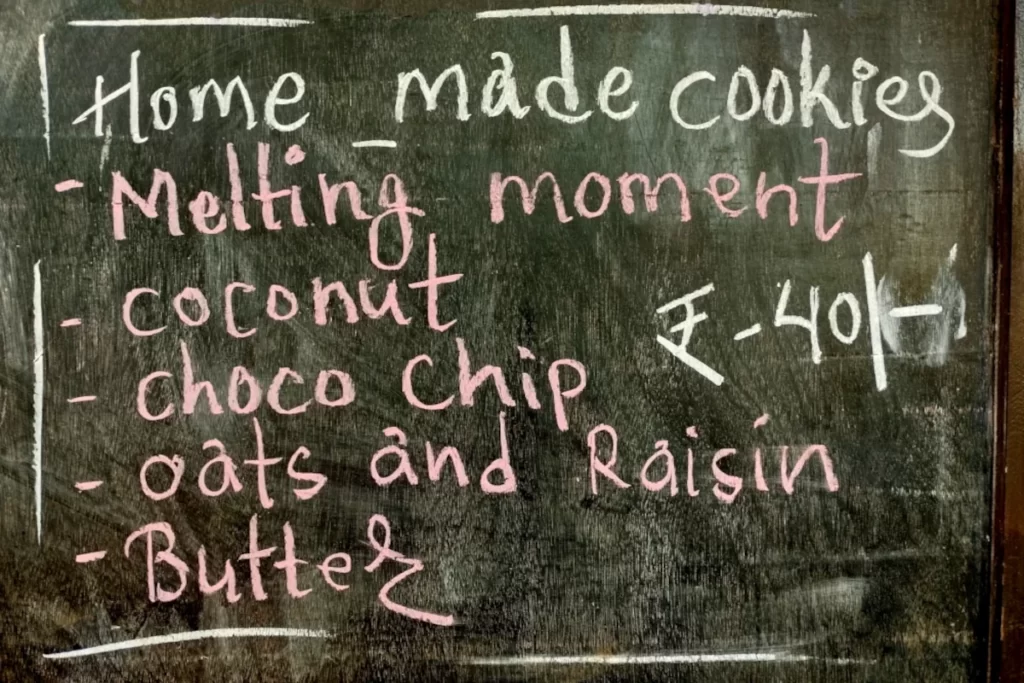 Home made cookies
- Melting moment
- coconut
₹ - 40/-
- choco chip
- oats and Raisin
- Butter